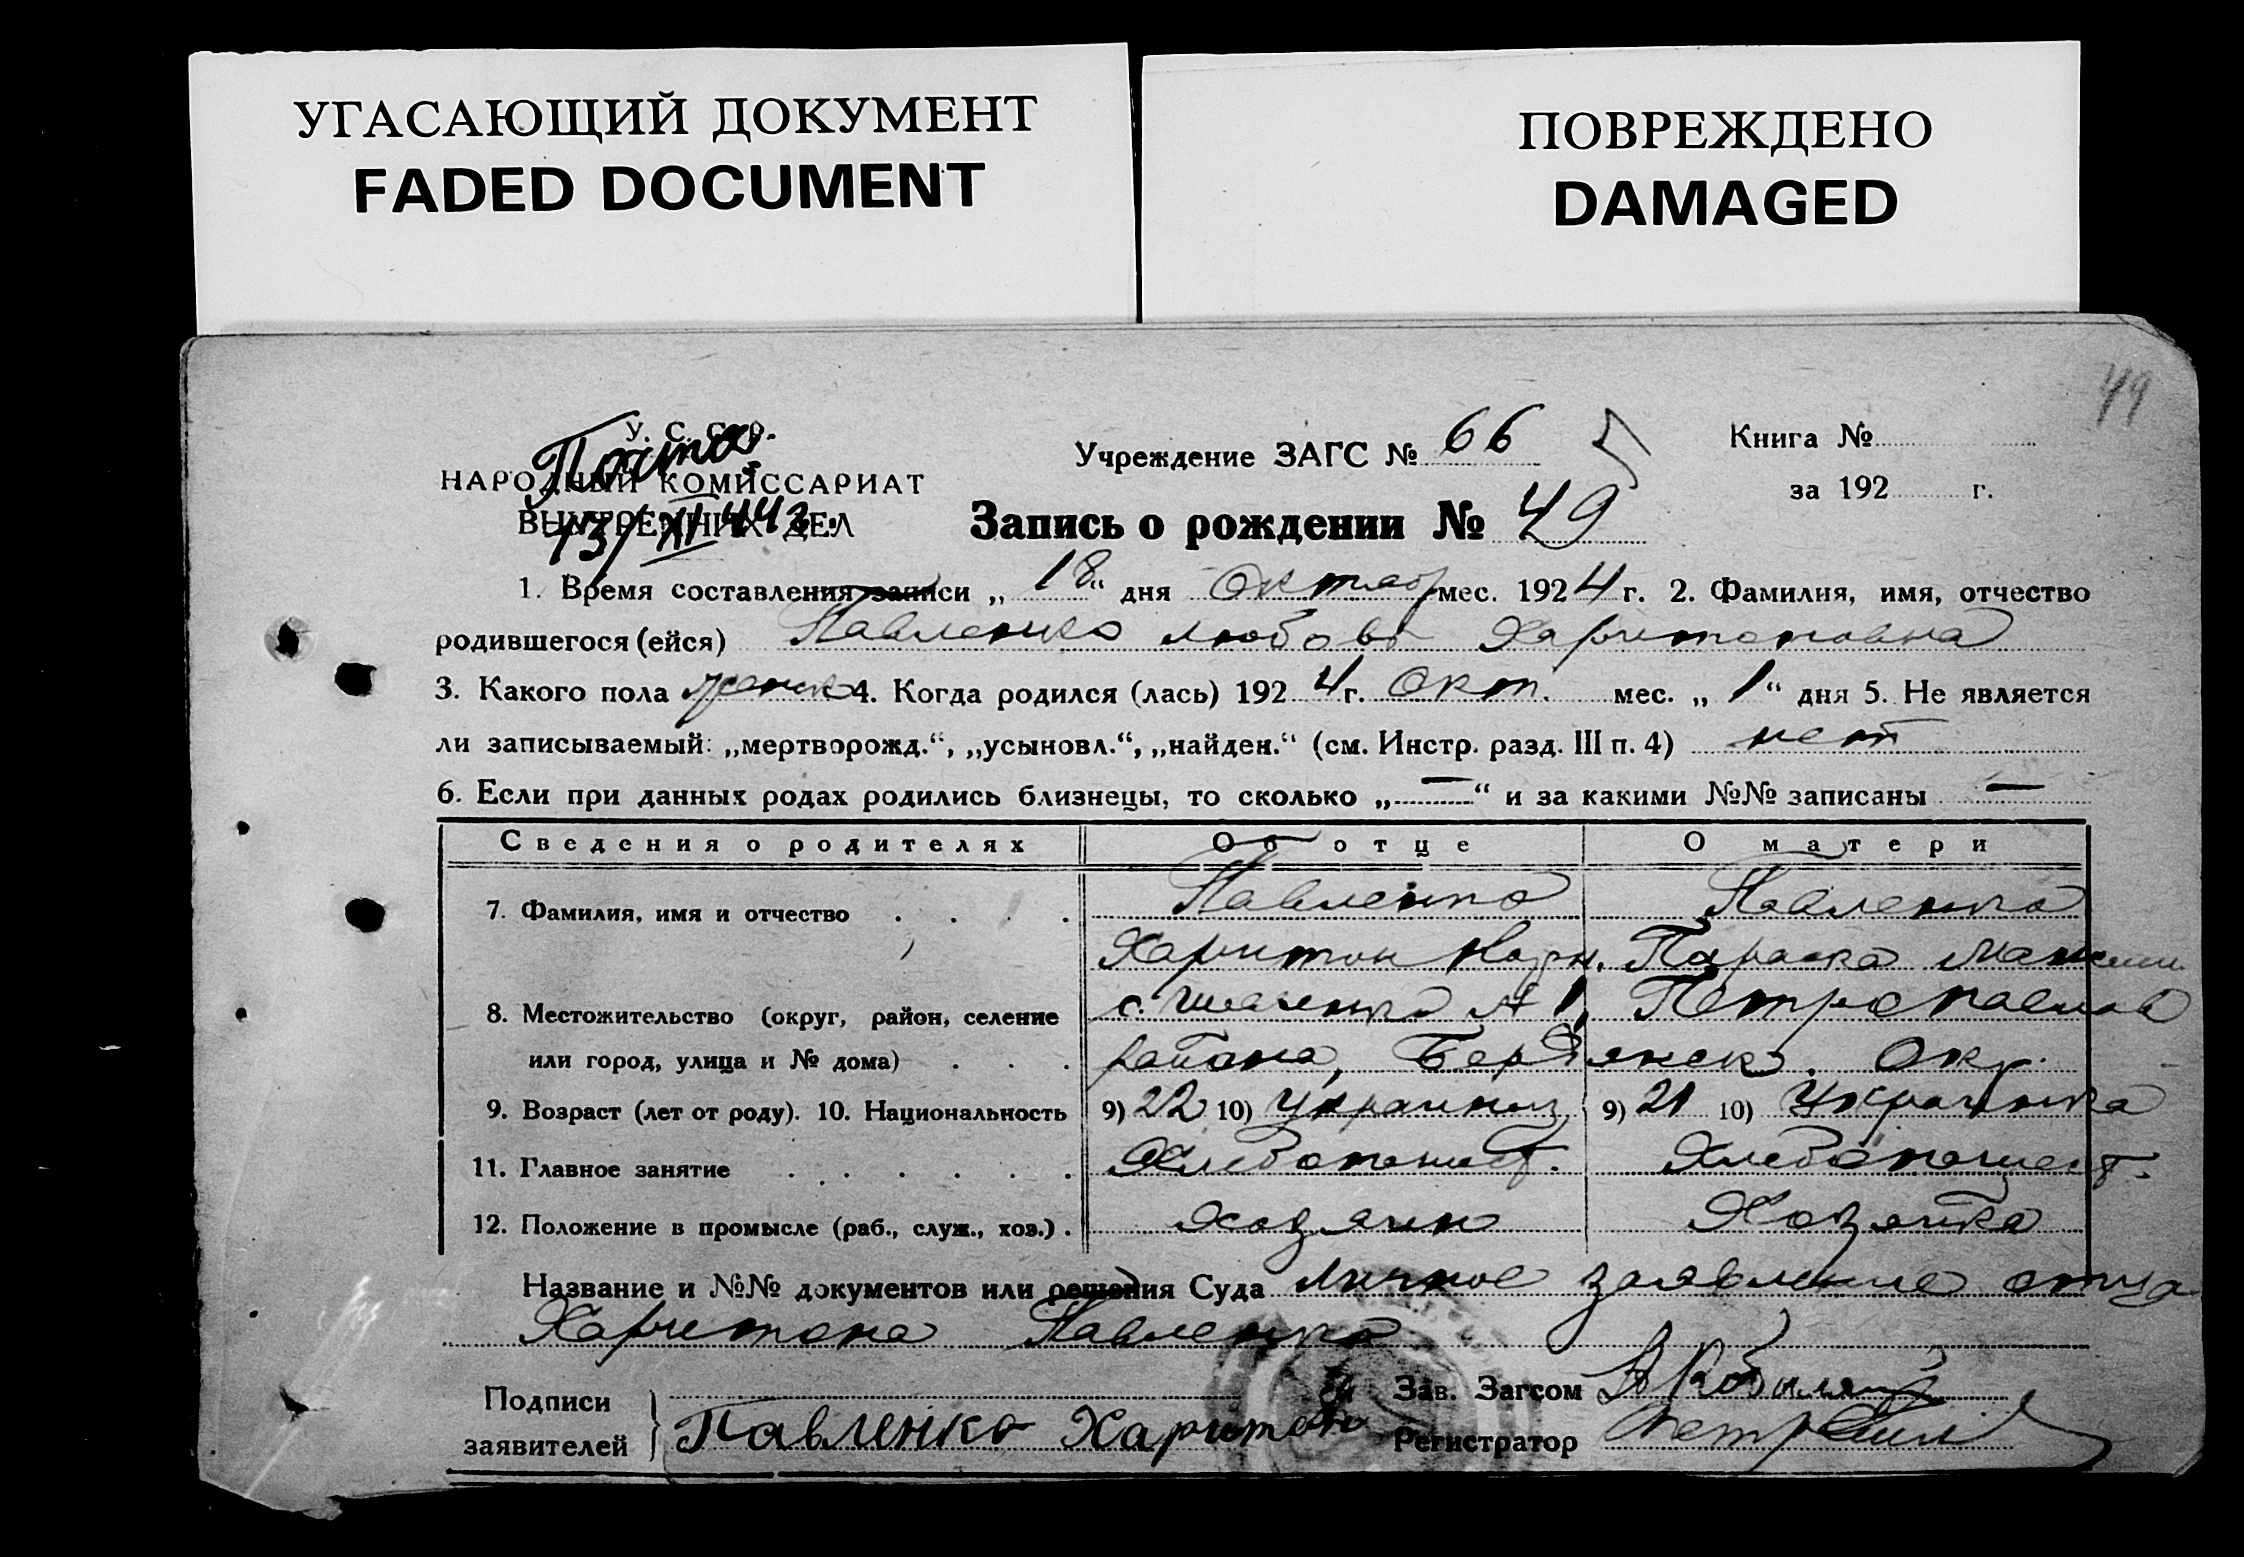 УГАСАЮЩИЙ ДОКУМЕНТ
FADED DOCUMENT
ПОВРЕЖДЕНО
DAMAGED
49
У. С. С. Р.
НАРОДНЫЙ КОМИССАРИАТ
ВНУТРЕННИХ ДЕЛ
13/XI 44г.
Учреждение ЗАГС № 66
Книга №
за 192 г.
Запись о рождении № 49
1. Время составления записи „18“ дня Октябр мес. 1924 г. 2. Фамилия, имя, отчество
родившегося (ейся) Павленко Любовь Харитоновна
3. Какого пола женск 4. Когда родился (лась) 1924 г. Окт. мес. „1“ дня 5. Не является
ли записываемый: „мертворожд.“, „усыновл.“, „найден.“ (см. Инстр. разд. III п. 4) нет
6. Если при данных родах родились близнецы, то сколько „—“ и за какими №№ записаны —
Сведения о родителях Об отце О матери
7. Фамилия, имя и отчество . . . . Павленко Павленко
Харитон Параска Максим.
8. Местожительство (округ, район, селение с. № 1, Петропавлов
или город, улица и № дома) . . . района, Бердянск. Окр.
9. Возраст (лет от роду). 10. Национальность 9) 22 10) Украинец 9) 21 10) Украинка
11. Главное занятие . . . . . . Хлебопашест. Хлебопашест.
12. Положение в промысле (раб., служ., хоз.) . Хозяин Хозяйка
Название и №№ документов или решения Суда Личное заявление отца
Харитона Павленко
Подписи
заявителей } Павленко Харитон
Зав. Загсом
Регистратор